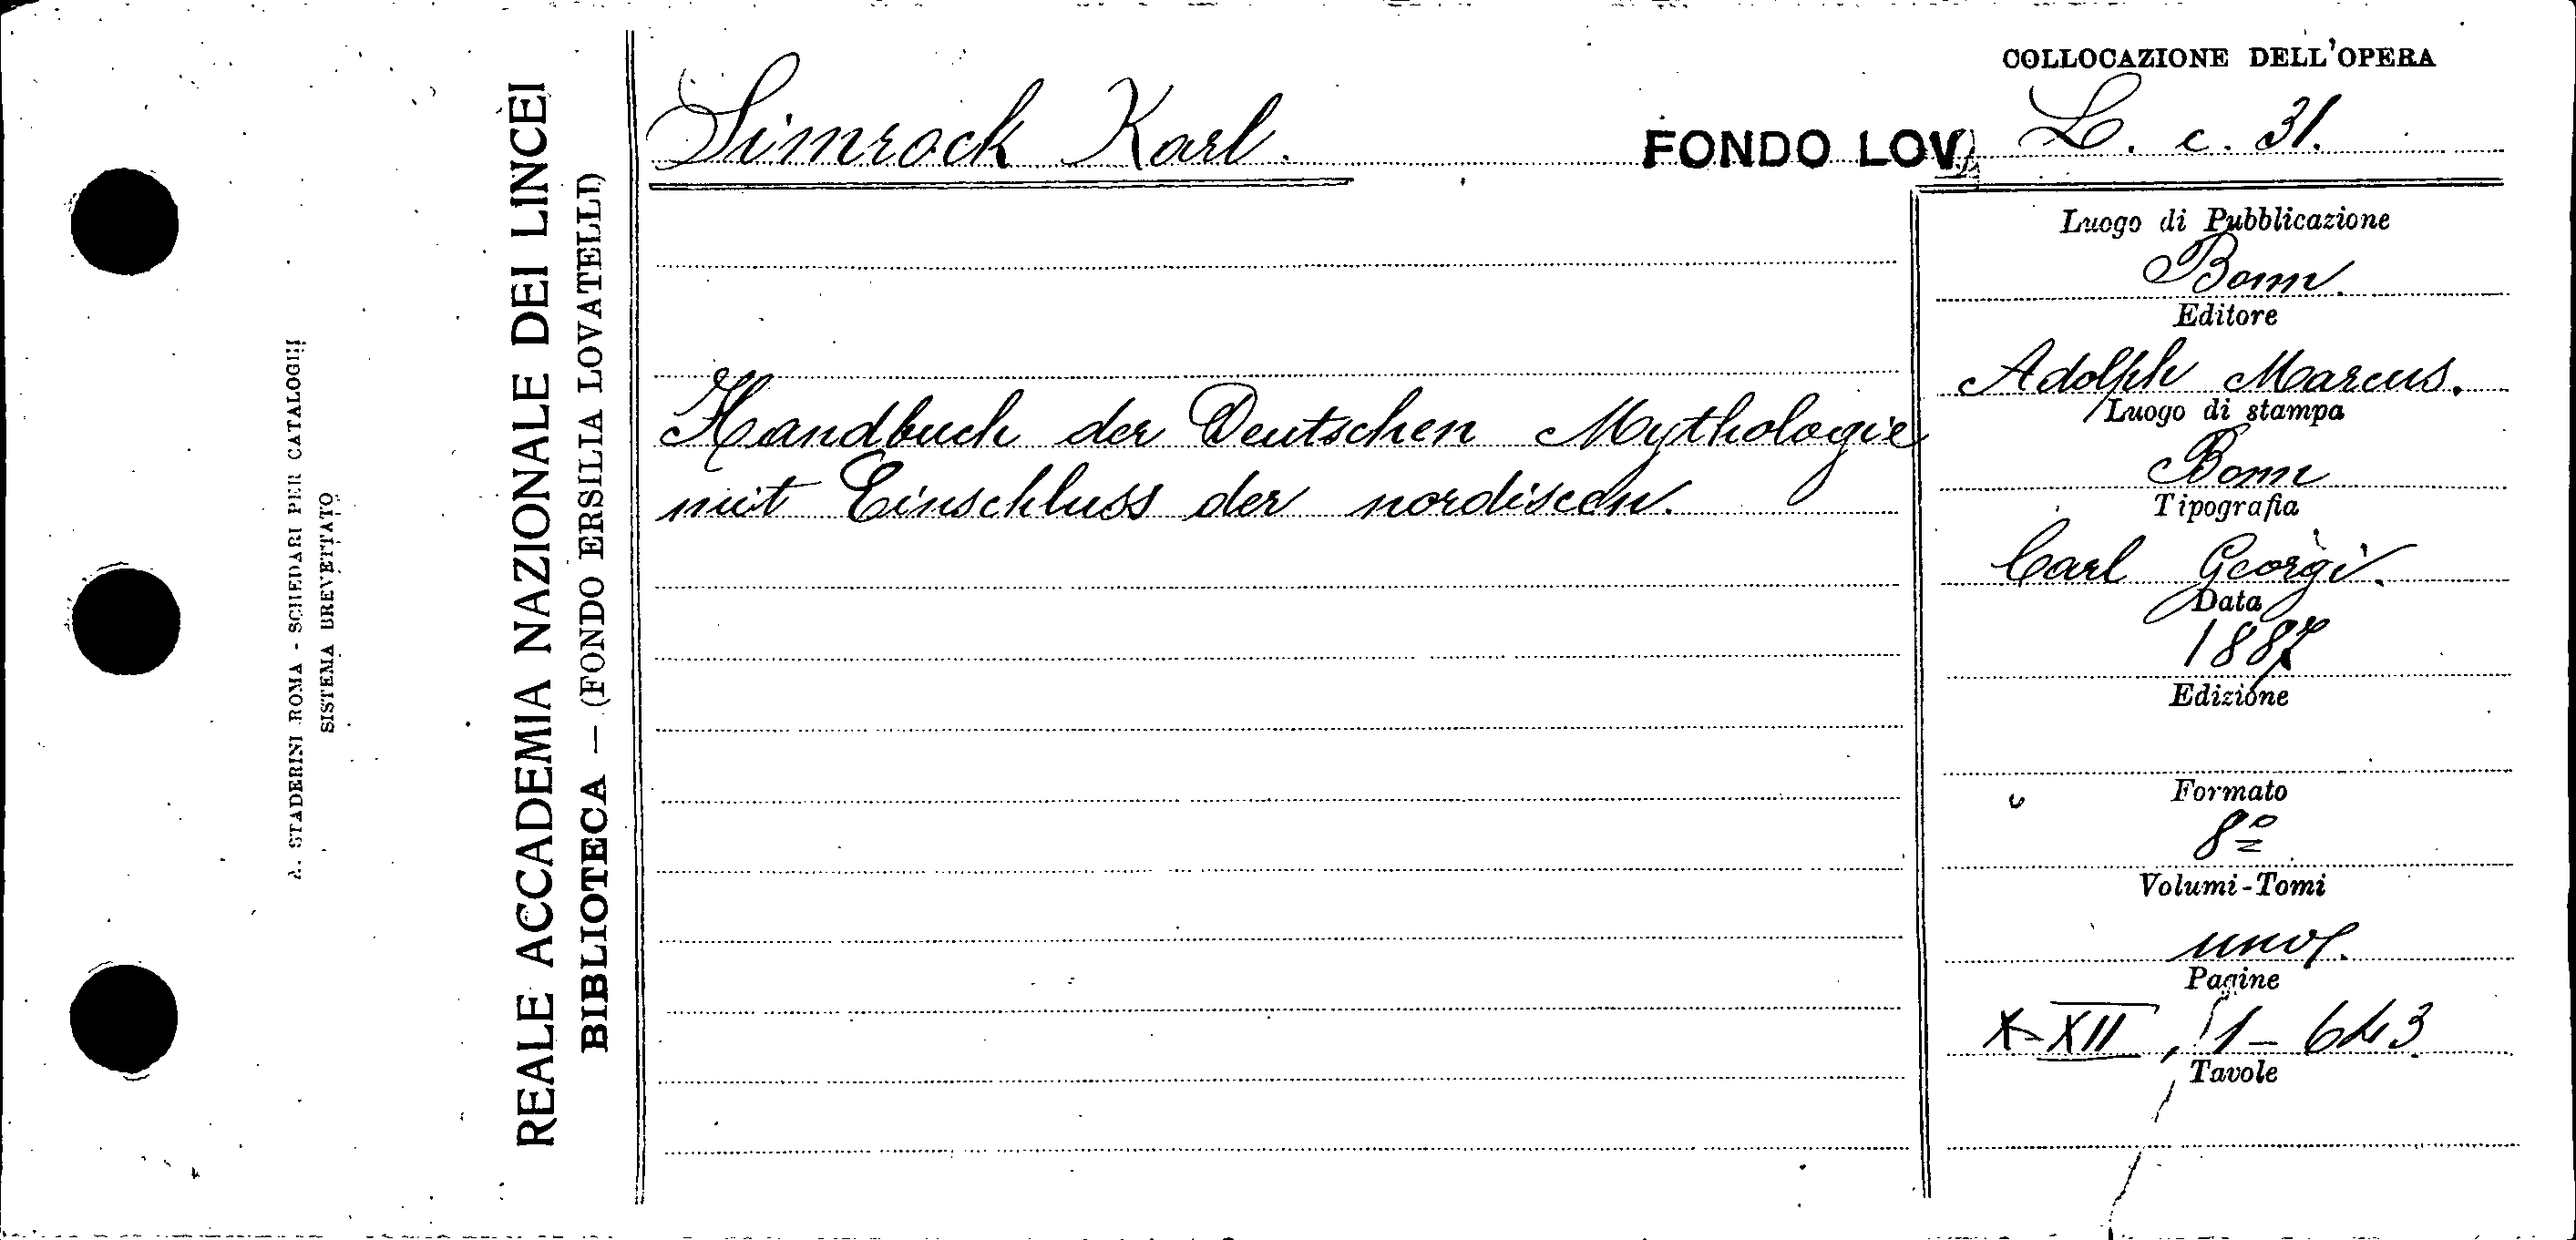 A. STADERINI ROMA - SCHEDARI PER CATALOGHI
SISTEMA BREVETTATO
REALE ACCADEMIA NAZIONALE DEI LINCEI
BIBLIOTECA — (FONDO ERSILIA LOVATELLI)
Simrock Karl.
FONDO LOV
COLLOCAZIONE DELL'OPERA
L. c. 31.
Handbuch der Deutschen Mythologie
mit Einschluss der nordiscen.
Luogo di Pubblicazione
Bonn.
Editore
Adolph Marcus.
Luogo di stampa
Bonn
Tipografia
Carl Georgi.
Data
1887
Edizione
Formato
8º
Volumi-Tomi
uno.
Pagine
X-XII, 1-643
Tavole